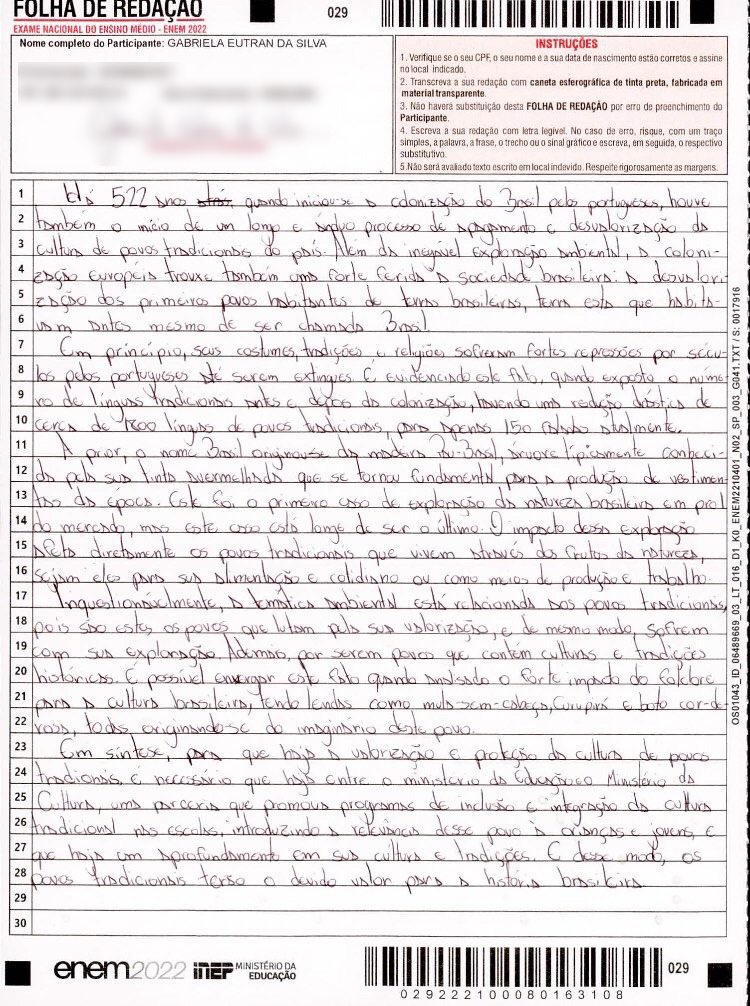 FOLHA DE REDAÇÃO
EXAME NACIONAL DO ENSINO MÉDIO - ENEM 2022
029
Nome completo do Participante: GABRIELA EUTRAN DA SILVA
INSTRUÇÕES
1. Verifique se o seu CPF, o seu nome e a sua data de nascimento estão corretos e assine no local indicado.
2. Transcreva a sua redação com caneta esferográfica de tinta preta, fabricada em material transparente.
3. Não haverá substituição desta FOLHA DE REDAÇÃO por erro de preenchimento do Participante.
4. Escreva a sua redação com letra legível. No caso de erro, risque, com um traço simples, a palavra, a frase, o trecho ou o sinal gráfico e escreva, em seguida, o respectivo substitutivo.
5. Não será avaliado texto escrito em local indevido. Respeite rigorosamente as margens.
1 Há 522 anos atrás, quando iniciou-se a colonização do Brasil pelos portugueses, houve
2 também o início de um longo e árduo processo de apagamento e desvalorização da
3 cultura de povos tradicionais do país. Além da inegável exploração ambiental, a coloni-
4 zação européia trouxe também uma forte ferida a sociedade brasileira: a desvalori-
5 zação dos primeiros povos habitantes de terras brasileiras, terra esta que habita-
6 vam antes mesmo de ser chamada Brasil.
7 Em princípio, seus costumes, tradições e religiões sofreram fortes repressões por sécu-
8 los pelos portugueses até serem extingues. É evidenciado este fato, quando exposto o núme-
9 ro de línguas tradicionais antes e depois da colonização, havendo uma redução drástica de
10 cerca de 1200 línguas de povos tradicionais, para apenas 150 faladas atualmente.
11 A priori, o nome Brasil originou-se da madeira Pau-Brasil, árvore tipicamente conheci-
12 da pela sua tinta avermelhada que se tornou fundamental para a produção de vestimen-
13 tas da época. Este foi o primeiro caso de exploração da natureza brasileira em prol
14 do mercado, mas este caso está longe de ser o último. O impacto dessa exploração
15 afeta diretamente os povos tradicionais que vivem através dos frutos da natureza,
16 sejam eles para sua alimentação e cotidiano ou como meios de produção e trabalho.
17 Inquestionavelmente, a temática ambiental está relacionada aos povos tradicionais,
18 pois são estes os povos que lutam pela sua valorização, e de mesmo modo, sofrem
19 com sua exploração. Ademais, por serem povos que contém culturas e tradições
20 históricas. É possível enxergar este fato quando analisado o forte impacto do folclore
21 para a cultura brasileira, tendo lendas como mula-sem-cabeça, Curupira e boto cor-de-
22 rosa, todas originando-se do imaginário deste povo.
23 Em síntese, para que haja a valorização e proteção da cultura de povos
24 tradionais, é necessário que haja entre o ministério da Educação e o Ministério da
25 Cultura, uma parceria que promova programas de inclusão e integração da cultura
26 tradicional nas escolas, introduzindo a relevância desse povo à crianças e jovens, e
27 que haja um aprofundamento em sua cultura e tradições. E desse modo, os
28 povos tradicionais terão o devido valor para a história brasileira.
29
30
OS01043_ID_06489669_03_LT_016_D1_K0_ENEM2210401_N02_SP_003_G041.TXT / S: 0017916
enem2022 INEP MINISTÉRIO DA EDUCAÇÃO
029222100080163108
029